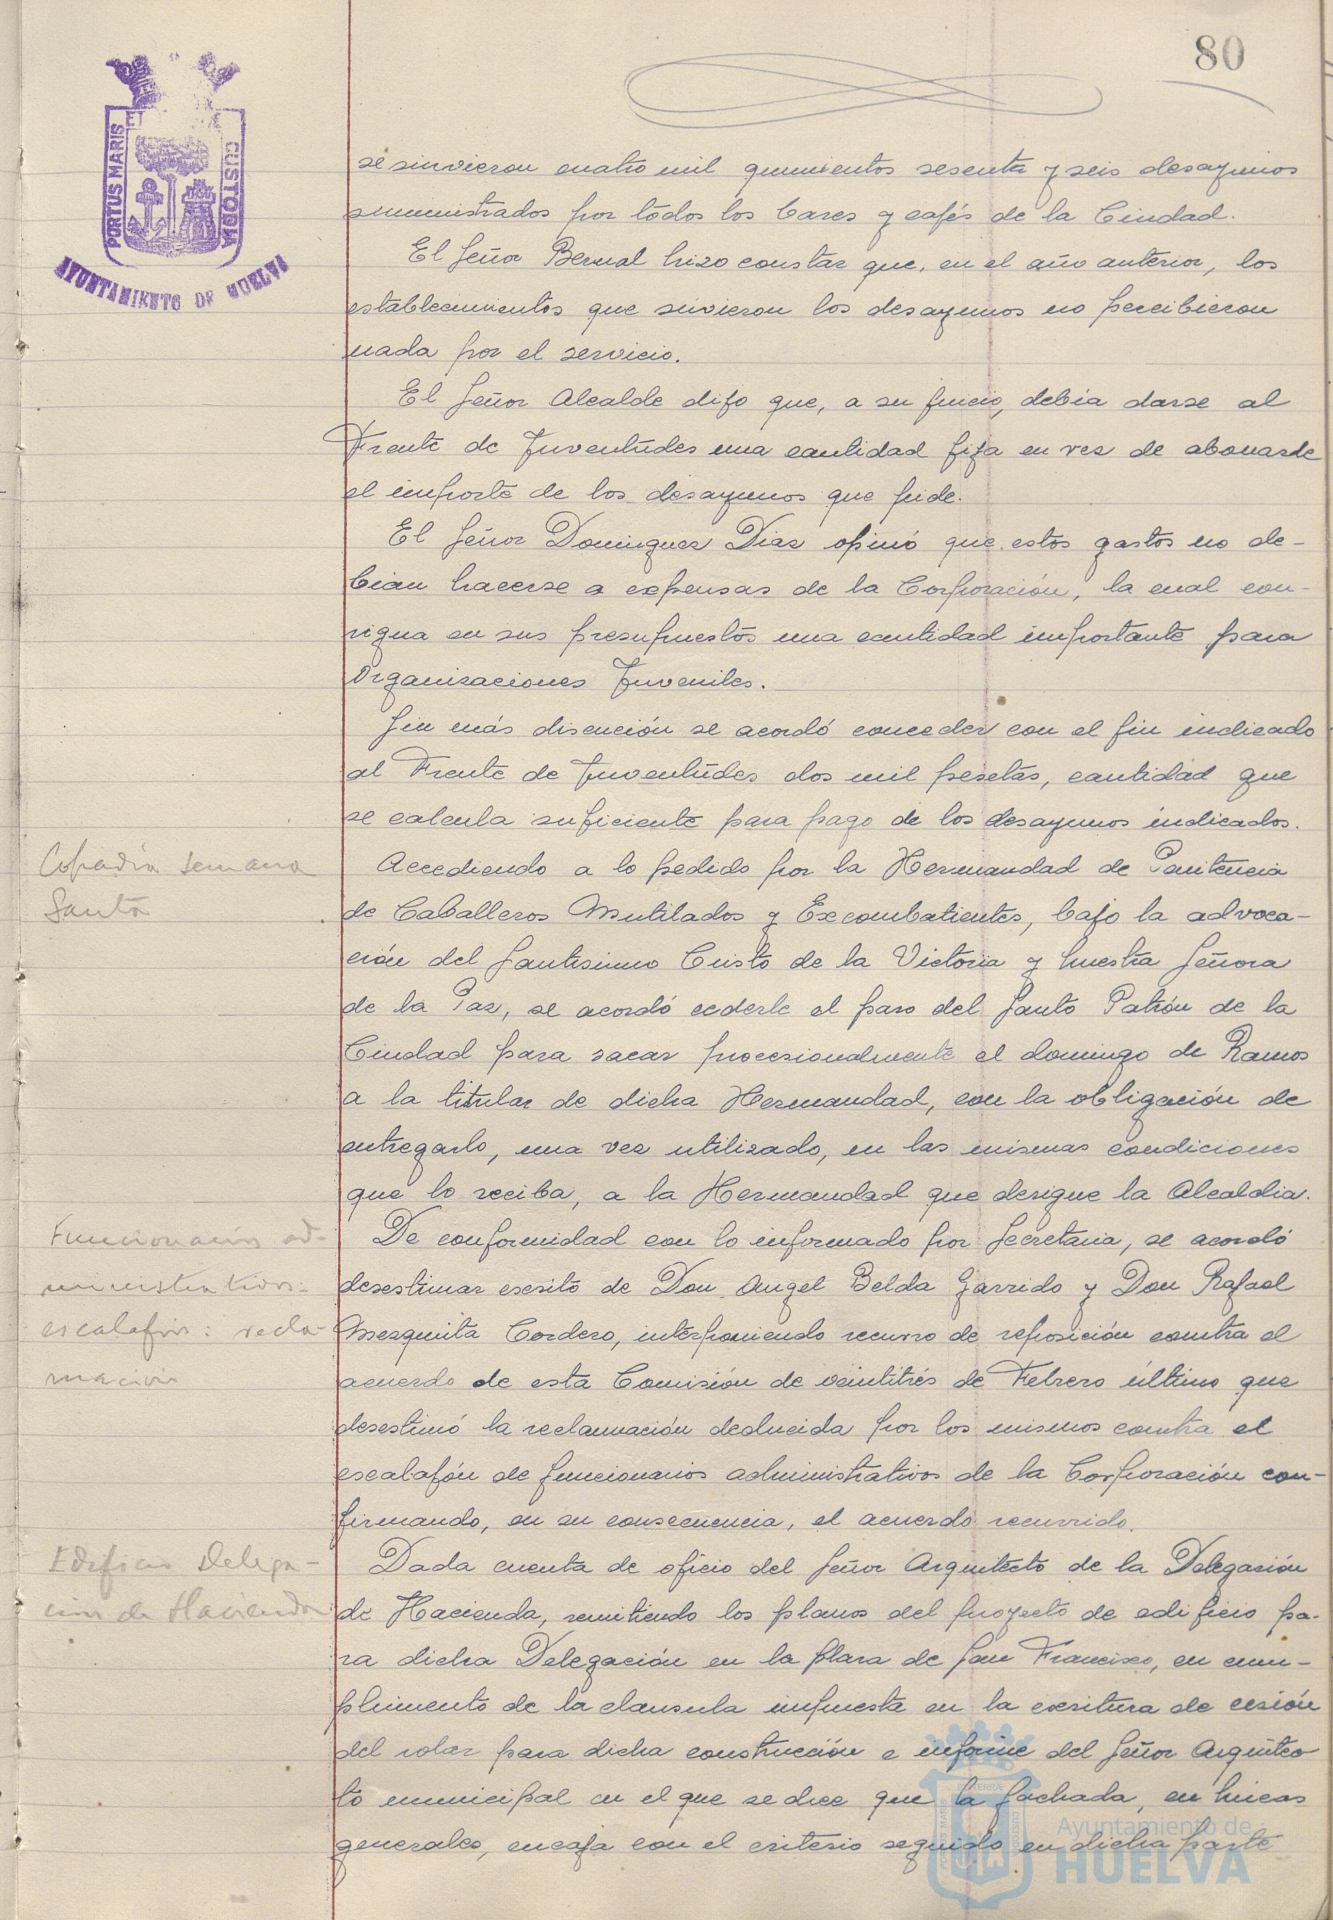 80
PORTUS MARIS
ET
CUSTODIA
AYUNTAMIENTO DE HUELVA
se sirvieron cuatro mil quinientos sesenta y seis desayunos
suministrados por todos los bares y cafés de la Ciudad.
El Señor Bernal hizo constar que, en el año anterior, los
establecimientos que sirvieron los desayunos no percibieron
nada por el servicio.
El Señor Alcalde dijo que, a su juicio, debía darse al
Frente de Juventudes una cantidad fija en vez de abonarle
el importe de los desayunos que pide.
El Señor Dominguez Diaz opinó que estos gastos no de-
bian hacerse a expensas de la Corporación, la cual con-
signa en sus presupuestos una cantidad importante para
Organizaciones Juveniles.
Sin más discución se acordó conceder con el fin indicado
al Frente de Juventudes dos mil pesetas, cantidad que
se calcula suficiente para pago de los desayunos indicados.
Cofradía Semana
Santa
Accediendo a lo pedido por la Hermandad de Penitencia
de Caballeros Mutilados y Excombatientes, bajo la advoca-
ción del Santisimo Cristo de la Victoria y Nuestra Señora
de la Paz, se acordó cederle el paso del Santo Patrón de la
Ciudad para sacar procesionalmente el domingo de Ramos
a la titular de dicha Hermandad, con la obligación de
entregarlo, una vez utilizado, en las mismas condiciones
que lo reciba, a la Hermandad que designe la Alcaldia.
Funcionarios ad-
ministrativos:
escalafón: recla-
mación
De conformidad con lo informado por Secretaria, se acordó
desestimar escrito de Don Angel Belda Garrido y Don Rafael
Mezquita Cordero, interponiendo recurso de reposición contra el
acuerdo de esta Comisión de veintitrés de Febrero último que
desestimó la reclamación deducida por los mismos contra el
escalafón de funcionarios administrativos de la Corporación con-
firmando, en su consecuencia, el acuerdo recurrido.
Edificio Delega-
ción de Hacienda
Dada cuenta de oficio del Señor Arquitecto de la Delegación
de Hacienda, remitiendo los planos del proyecto de edificio pa-
ra dicha Delegación en la plaza de San Francisco, en cum-
plimento de la clausula impuesta en la escritura de cesión
del solar para dicha construcción e informe del Señor Arquitec
to municipal en el que se dice que la fachada, en lineas
generales, encaja con el criterio seguido en dicha parte
Ayuntamiento de
HUELVA